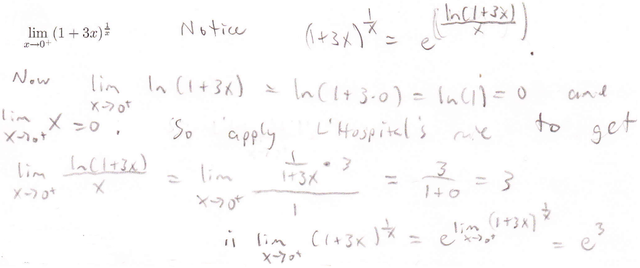 lim x→0⁺ (1 + 3x)^(1/x) Notice (1+3x)^(1/x) = e^(ln(1+3x)/x).
Now lim x→0⁺ ln(1+3x) = ln(1+3·0) = ln(1) = 0 and
lim x→0⁺ x = 0. So apply L'Hospital's rule to get
lim x→0⁺ ln(1+3x)/x = lim x→0⁺ (1/(1+3x) * 3)/1 = 3/(1+0) = 3
is lim x→0⁺ (1+3x)^(1/x) = e^(lim x→0⁺ (1+3x)^(1/x)) = e^3